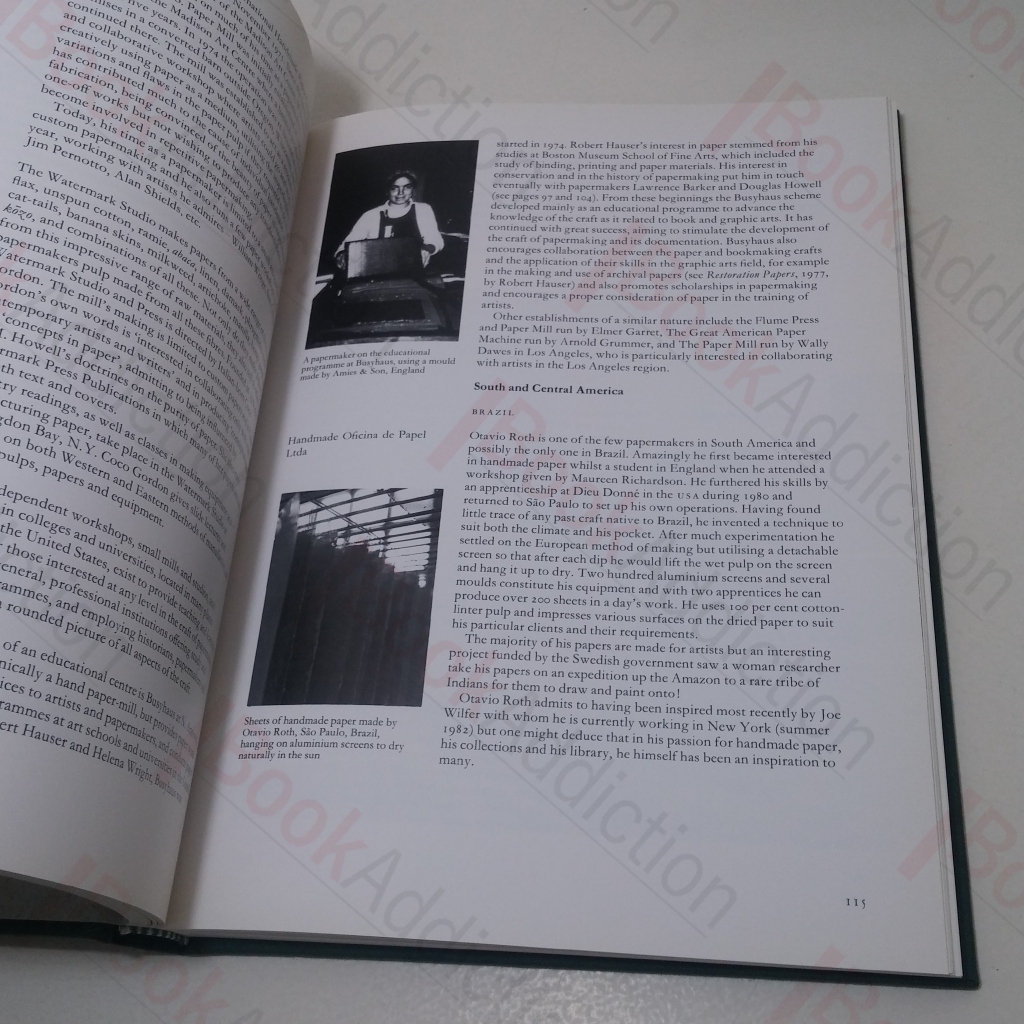 continued there. The mill was
and collaborative workshop, where
creatively using paper as a medium, utilising
variations and flaws in the paper pulp
has contributed much to the cause of
fabrication, being convinced of
one-off works but not wishing to
become involved in repetitive papermaking
Today, his time as a papermaker
custom papermaking and he also runs
year, working with artists he admires
Jim Pernotto, Alan Shields, etc.
The Watermark Studio makes papers from a
flax, unspun cotton, ramie, abaca, linen,
cat-tails, banana skins, milkweed, artichoke
kōzo, and combinations of all these.
from this impressive range of raw material
papermakers pulp made from all these
Watermark Studio and Press is directed by
ordon. The mill's making is limited to
ordon's own words is 'interested in collaborating
temporary artists and writers' and in producing
'concepts in paper', admitting to being influenced
. Howell's doctrines on the purity of paper
rmark Press Publications in which many of
th text and covers.
ry readings, as well as classes in making
cturing paper, take place in the Watermark Studio
gdon Bay, N.Y. Coco Gordon gives slide lectures
on both Western and Eastern methods of
pulps, papers and equipment.
dependent workshops, small mills and studios
in colleges and universities, located in many
the United States, exist to provide teaching
f those interested at any level in the craft of
general, professional institutions offering
rammes, and employing historians, papermakers
rounded picture of all aspects of the craft.
of an educational centre is Busyhaus at N.
nically a hand paper-mill, but provides
ices to artists and papermakers, and
rammes at art schools and universities
ert Hauser and Helena Wright, Busyhaus was
started in 1974. Robert Hauser's interest in paper stemmed from his
studies at Boston Museum School of Fine Arts, which included the
study of binding, printing and paper materials. His interest in
conservation and in the history of papermaking put him in touch
eventually with papermakers Lawrence Barker and Douglas Howell
(see pages 97 and 104). From these beginnings the Busyhaus scheme
developed mainly as an educational programme to advance the
knowledge of the craft as it related to book and graphic arts. It has
continued with great success, aiming to stimulate the development of
the craft of papermaking and its documentation. Busyhaus also
encourages collaboration between the paper and bookmaking crafts
and the application of their skills in the graphic arts field, for example
in the making and use of archival papers (see Restoration Papers, 1977,
by Robert Hauser) and also promotes scholarships in papermaking
and encourages a proper consideration of paper in the training of
artists.
Other establishments of a similar nature include the Flume Press
and Paper Mill run by Elmer Garret, The Great American Paper
Machine run by Arnold Grummer, and The Paper Mill run by Wally
Dawes in Los Angeles, who is particularly interested in collaborating
with artists in the Los Angeles region.
A papermaker on the educational
programme at Busyhaus, using a mould
made by Amies & Son, England
South and Central America
BRAZIL
Handmade Oficina de Papel
Ltda
Otavio Roth is one of the few papermakers in South America and
possibly the only one in Brazil. Amazingly he first became interested
in handmade paper whilst a student in England when he attended a
workshop given by Maureen Richardson. He furthered his skills by
an apprenticeship at Dieu Donné in the USA during 1980 and
returned to São Paulo to set up his own operations. Having found
little trace of any past craft native to Brazil, he invented a technique to
suit both the climate and his pocket. After much experimentation he
settled on the European method of making but utilising a detachable
screen so that after each dip he would lift the wet pulp on the screen
and hang it up to dry. Two hundred aluminium screens and several
moulds constitute his equipment and with two apprentices he can
produce over 200 sheets in a day's work. He uses 100 per cent cotton-
linter pulp and impresses various surfaces on the dried paper to suit
his particular clients and their requirements.
The majority of his papers are made for artists but an interesting
project funded by the Swedish government saw a woman researcher
take his papers on an expedition up the Amazon to a rare tribe of
Indians for them to draw and paint onto!
Otavio Roth admits to having been inspired most recently by Joe
Wilfer with whom he is currently working in New York (summer
1982) but one might deduce that in his passion for handmade paper,
his collections and his library, he himself has been an inspiration to
many.
Sheets of handmade paper made by
Otavio Roth, São Paulo, Brazil,
hanging on aluminium screens to dry
naturally in the sun
115
BookAddiction